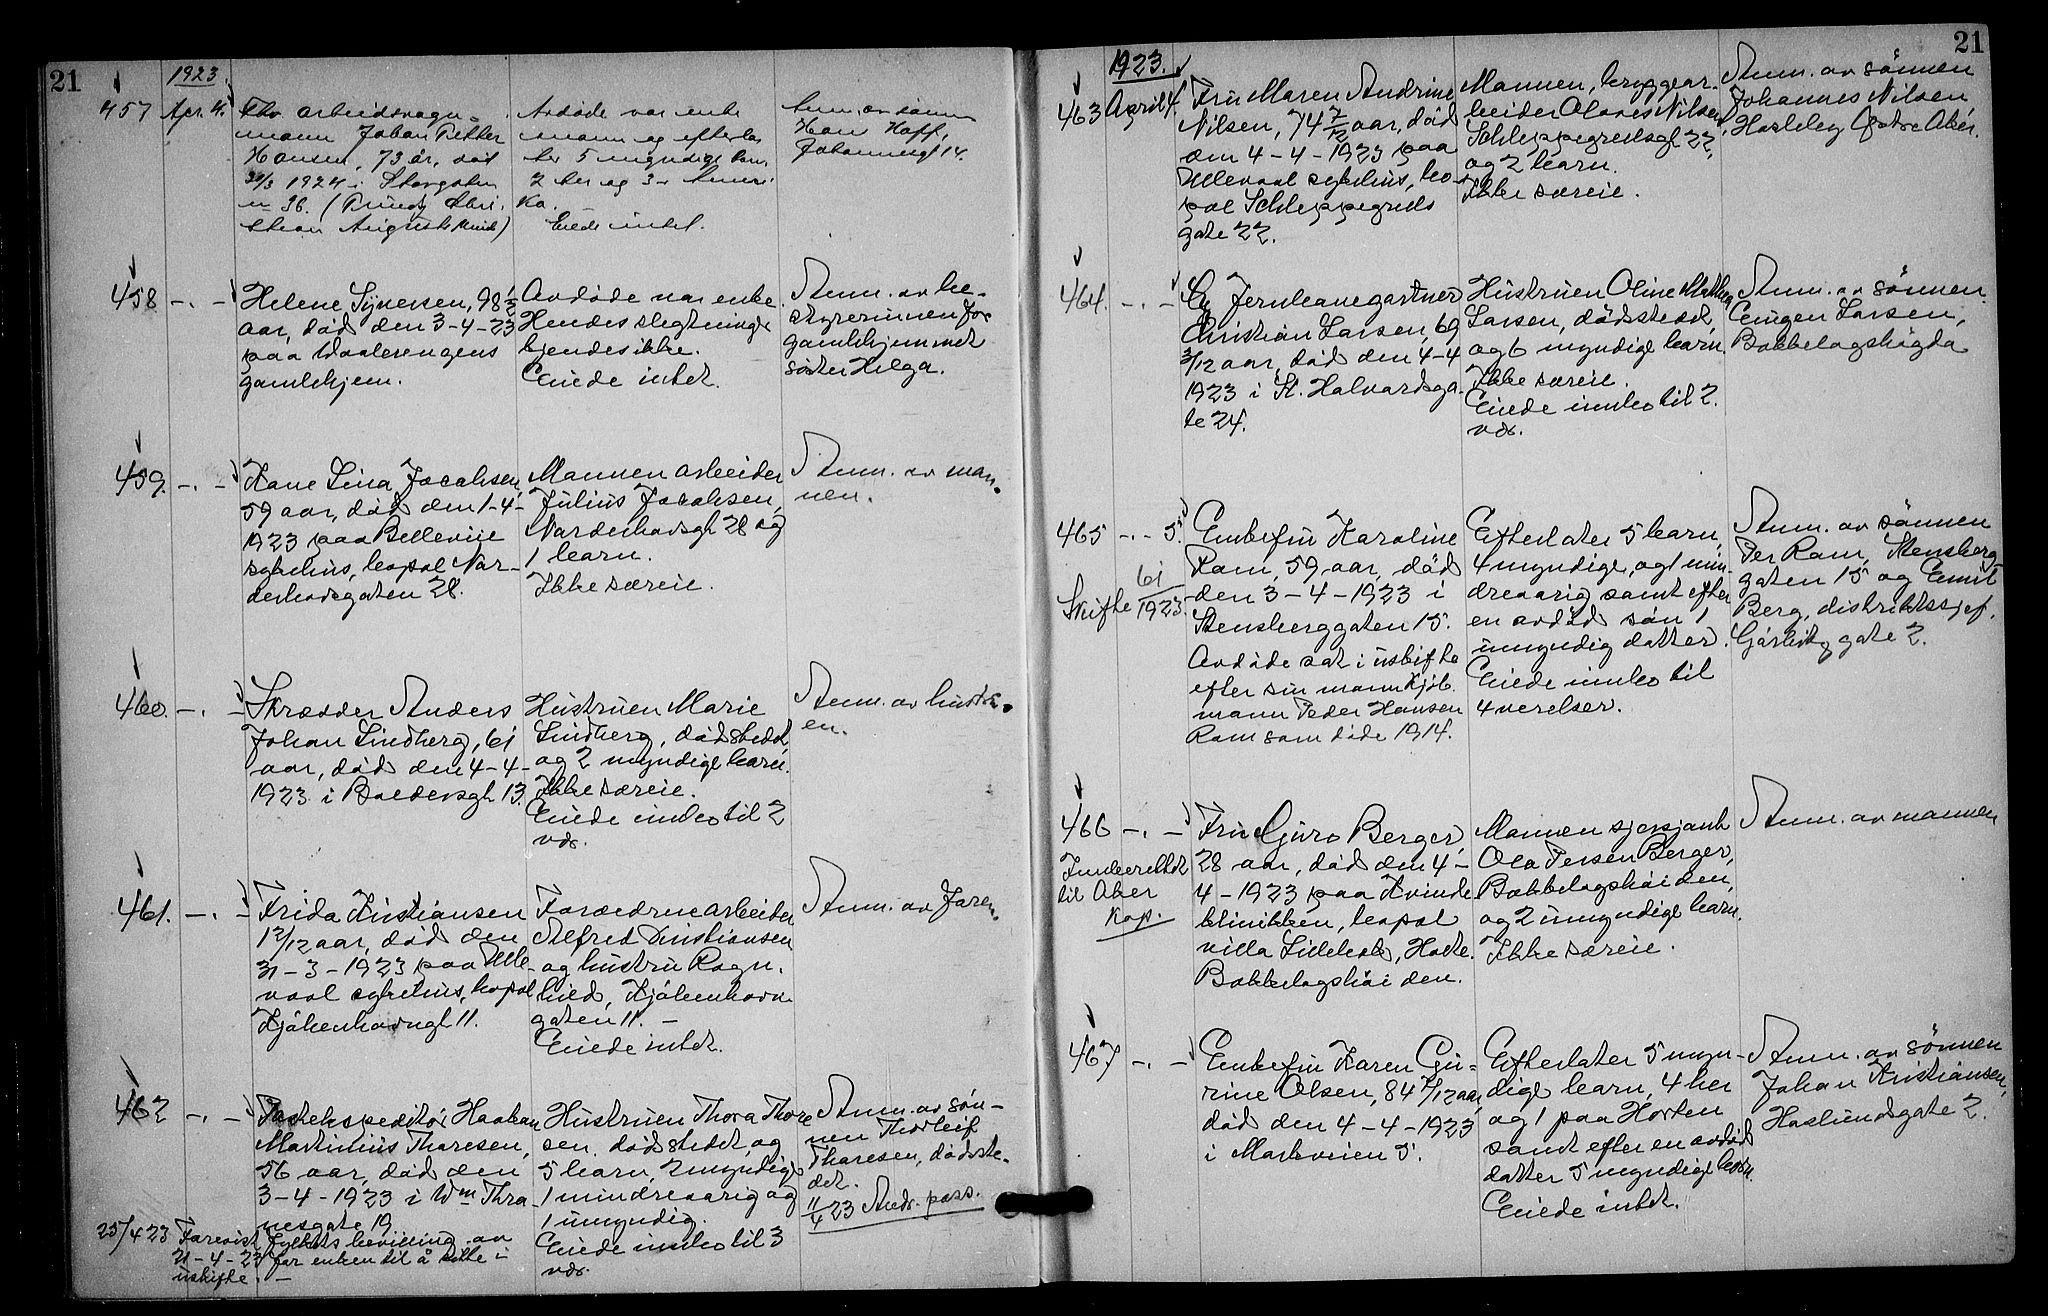 21
1923.
457 Apr. 4. Fhv. arbeidsvogn-
mann Johan Petter
Hansen, 73 år, død
31/3 1924 i Storgaten
n 36. (
August
Avdøde var enke
mann og efterla
ter 5 myndige barn,
2 her og 3 i Ameri
ka.
Eiede intet.
Anm. av sønn
Hoff,
Johannesgt 14.
458 -.- Helene Syversen, 98 1/2
aar, død den 3-4-23
paa Vaalerengens
gamlehjem.
Avdøde var enke.
Hendes slegtninge
kjendes ikke.
Eiede intet.
Anm. av be-
styrerinnen for
gamlehjemmet
søster Helga.
459. -.- Kone Lina Jacobsen,
59 aar, død den 1-4-
1923 paa Bellevue
sykehus, bopæl Nor-
derhovsgaten 28.
Mannen arbeider
Julius Jacobsen,
Norderhovsgt 28 og
1 barn.
Ikke særeie.
Anm. av man-
nen.
460. -.- Skrædder Anders
Johan Lindberg, 61
aar, død den 4-4-
1923 i Baldersgt 13.
Hustruen Marie
Lindberg, dødsstedet,
og 2 myndige barn.
Ikke særeie.
Eiede innbo til 2
vær.
Anm. av hustru-
en.
461. -.- Frida Kristiansen
1 2/12 aar, død den
31-3-1923 paa Ulle-
vaal sykehus, bopæl
Kjøbenhavngt 11.
Forældrene arbeider
Alfred Kristiansen
og hustru Ragn-
hild, Kjøbenhavn-
gaten 11. -
Eiede intet.
Anm. av faren.
462 -.- Postekspeditør Haakon
Martinius Thoresen,
56 aar, død den
3-4-1923 i Wm Thra
nesgate 19
Hustruen Thora Thore
sen, dødsstedet, og
5 barn, 2 myndige
1 mindreaarig og
1 umyndig.
Eiede innbo til 3
vær.
Anm. av søn-
nen Thorleif
Thoresen, dødsste-
det.
11/4 23 Andr. pass.
25/4 23 Forevist Fylkets bevilling av
21-4-23 for enken til å sitte i
uskifte. -
21
1923.
463 April 4. Fru Maren Andrine
Nilsen, 74 7/12 aar, død
den 4-4-1923 paa
Ullevaal sykehus, bo-
pæl Schleppegrells
gate 22.
Mannen, bryggear-
beider Olaves Nilsen
Schleppegrellsgt 22,
og 2 barn.
Ikke særeie.
Anm. av sønnen
Johannes Nilsen,
Hasleby Østre Aker.
464. -.- Eg Jernbanegartner
Christian Larsen, 69
3/12 aar, død den 4-4
1923 i St. Halvardsga-
te 24.
Hustruen Oline Mathea
Larsen, dødsstedet,
og 6 myndige barn.
Ikke særeie.
Eiede innbo til 2.
vær.
Anm. av sønnen
Eugen Larsen,
Bækkelagshøgda
465 -.- 5. Enkefru Karoline
Ram, 59 aar, død
den 3-4-1923 i
Stensberggaten 15.
Avdøde sat i uskifte
efter sin mann Kjøb-
mann Peder Hansen
Ram som døde 1914.
Skifte 61/1923.
Efterlater 5 barn,
4 myndige, og 1 min-
dreaarig samt efter
en avdød søn 1
umyndig datter.
Eiede innbo til
4 verelser.
Anm. av sønnen
Per Ram, Stensberg-
gaten 15 og Emil
Berg, distriktssjef,
gate 2.
466 -.- Fru Guro Berger,
28 aar, død den 4-
4-1923 paa Kvinde
klinikken, bopæl
villa Lillehol, Holte.
Bækkelagshøiden.
Innberettet
til Aker
Kap.
Mannen
Ola Persen Berger,
Bækkelagshøiden,
og 2 umyndige barn.
Ikke særeie.
Anm. av mannen
467 -.- Enkefru Karen Gu-
rine Olsen, 84 7/12 aar,
død den 4-4-1923
i Markveien 5.
Efterlater 5 myn-
dige barn, 4 her
og 1 paa Horten
samt efter en avdød
datter 5 myndige barn.
Eiede intet.
Anm. av sønnen
Johan Kristiansen,
Haslundsgate 2.